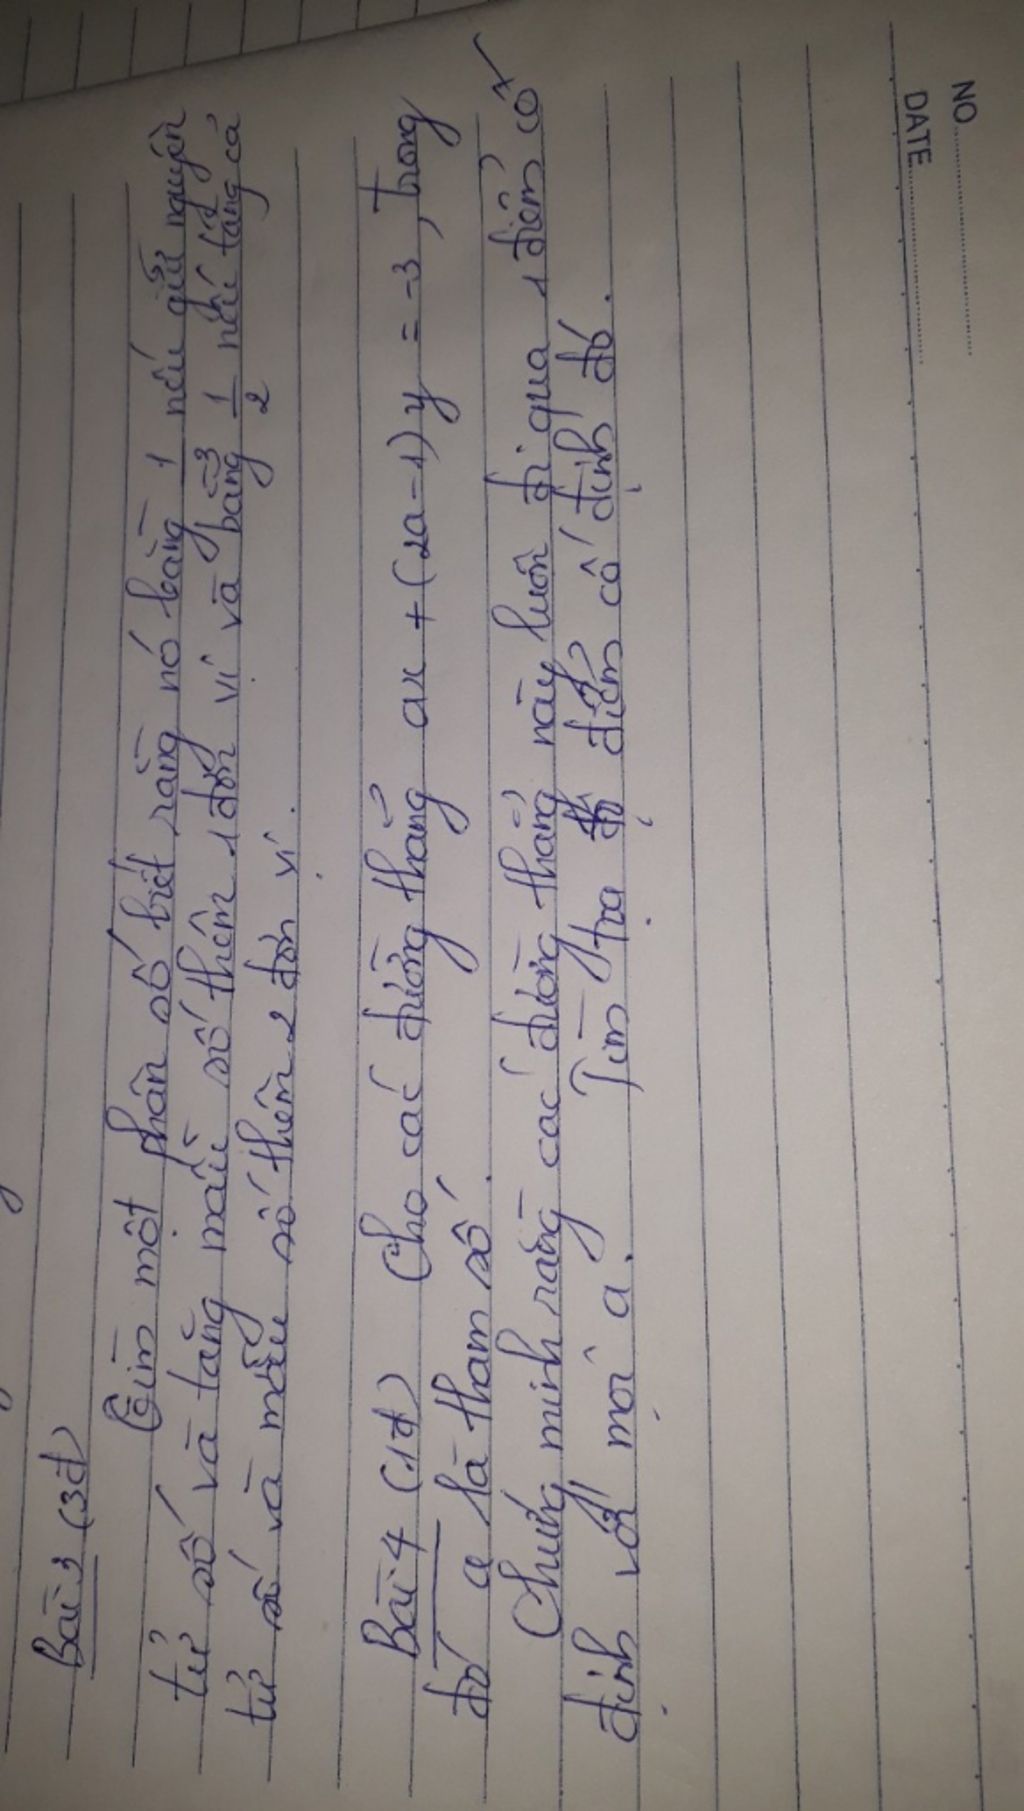 Bài 3 (3đ)
Tìm một phân số biết rằng nó bằng 1/3 nếu giữ nguyên
tử số và tăng mẫu số thêm 1 đơn vị và bằng 1/2 nếu tăng cả
tử số và mẫu số thêm 2 đơn vị.
Bài 4 (1đ) Cho các đường thẳng ax + (2a-1)y = -3, trong
đó a là tham số.
Chứng minh rằng các đường thẳng này luôn đi qua 1 điểm cố
định với mọi a. Tìm tọa độ điểm cố định đó.
NO
DATE